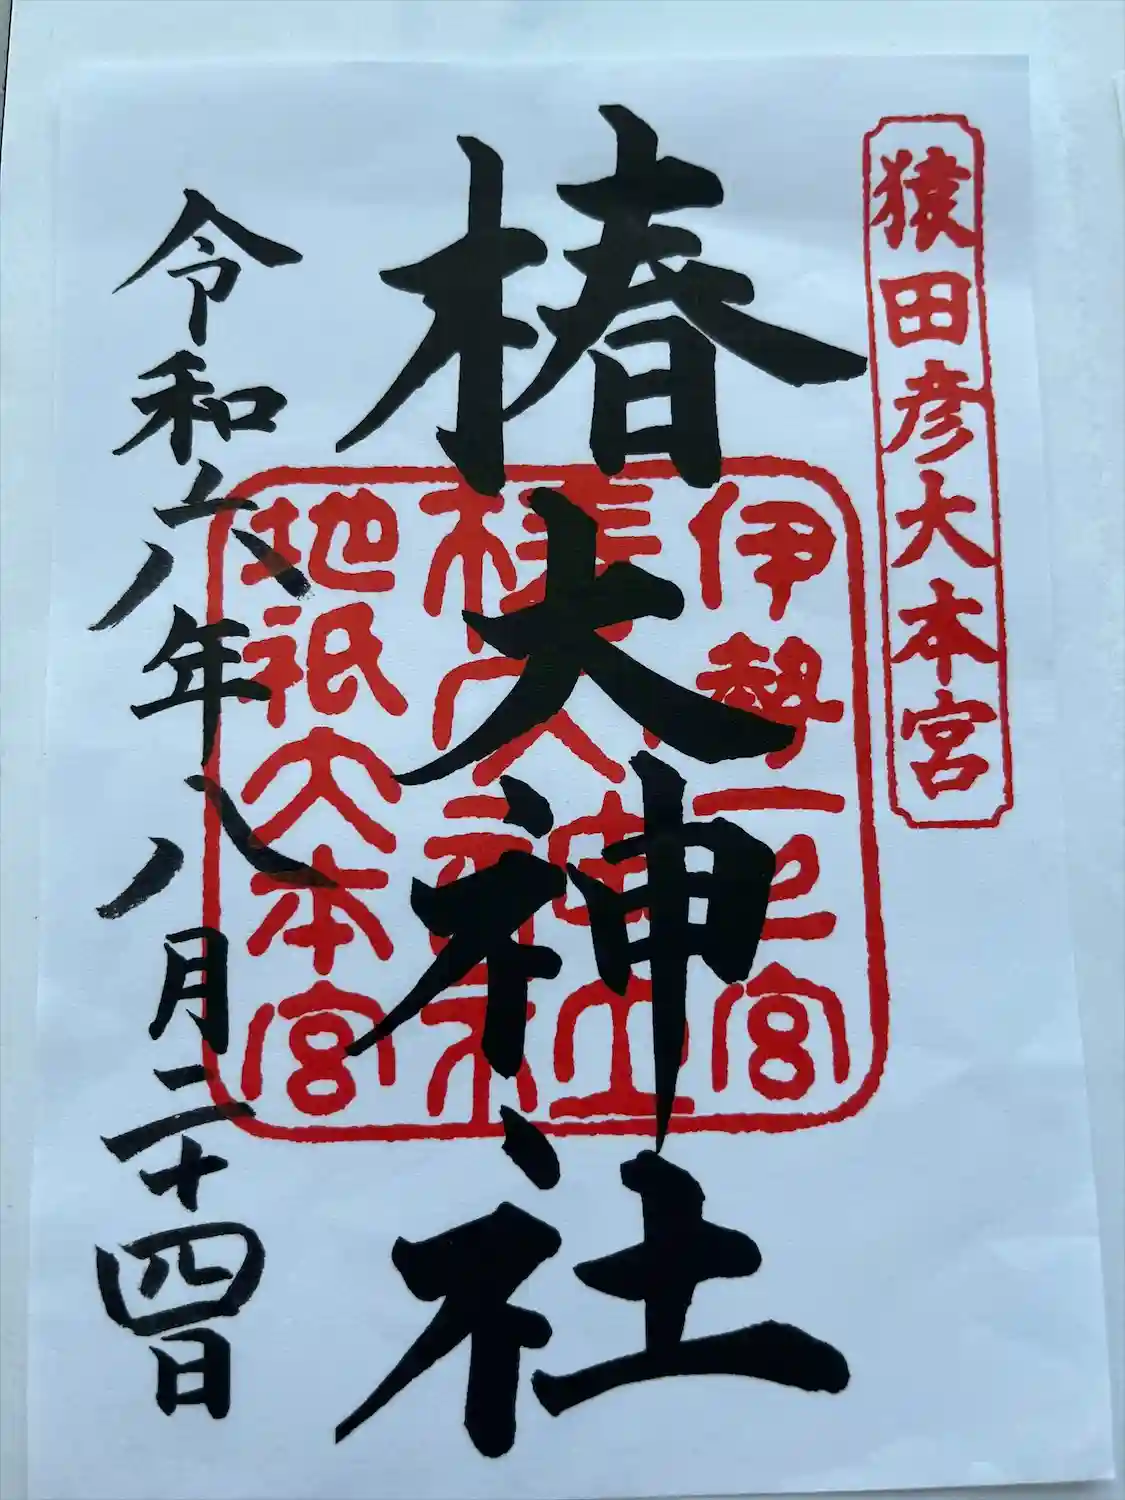 猿田彦大本宮
椿大神社
伊勢一之宮
椿大神社
地祇大本宮
令和六年八月二十四日